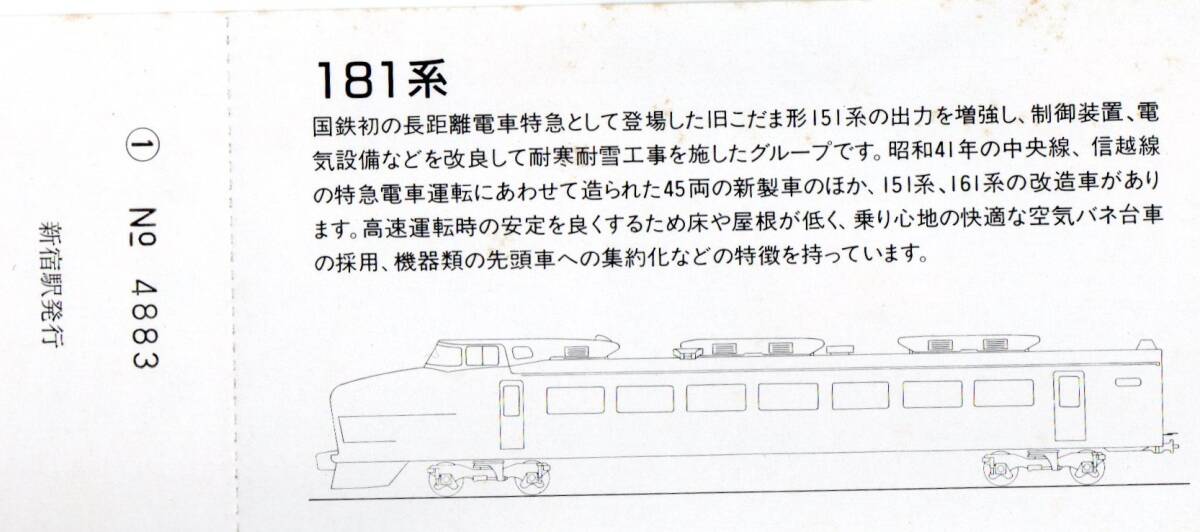 181系
国鉄初の長距離電車特急として登場した旧こだま形151系の出力を増強し、制御装置、電
気設備などを改良して耐寒耐雪工事を施したグループです。昭和41年の中央線、信越線
の特急電車運転にあわせて造られた45両の新製車のほか、151系、161系の改造車があり
ます。高速運転時の安定を良くするため床や屋根が低く、乗り心地の快適な空気バネ台車
の採用、機器類の先頭車への集約化などの特徴を持っています。
① № 4883
新宿駅発行